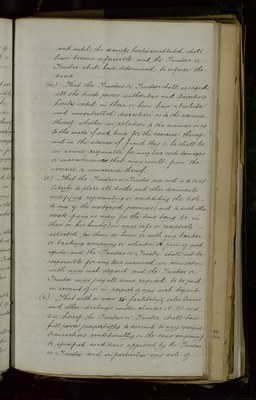 and until the security hereby constituted shall
have become enforceable and the Trustees or
Trustee shall have determined to enforce the
same
That the Trustees or Trustee shall as regards
all the trusts powers authorities and discretions
hereby vested in them or him have absolute
and uncontrolled discretion as to the exercise
thereof whether in relation to the manner or as
to the mode of and time for the exercise thereof
and in the absence of fraud they or he shall be
in nowise responsible for any loss costs damages
or inconvenience that may result from the
exercise or non exercise thereof
That the Trustees or Trustee are and is to be at
liberty to place all deeds and other documents
certifying representing or constituting the title
to any of the mortgaged premises
for the time being be in
their or his hands in any safe or receptacle
selected by them or him or with any banker
or banking company or solicitor or firm of
and the Trustees or Trustee shall not be
responsible for any loss incurred in connection
with any such deposit and the Trustees or
Trustee may pay all sums required to be paid
on account of or in respect of any such deposit
That with a view to facilitating sales leases
and other dealings under clauses
hereof the Trustees or Trustee shall have
full power to consent to any
transactions conditionally on the
to specified conditions approved by the Trustees
or Trustee and in particular any sale of